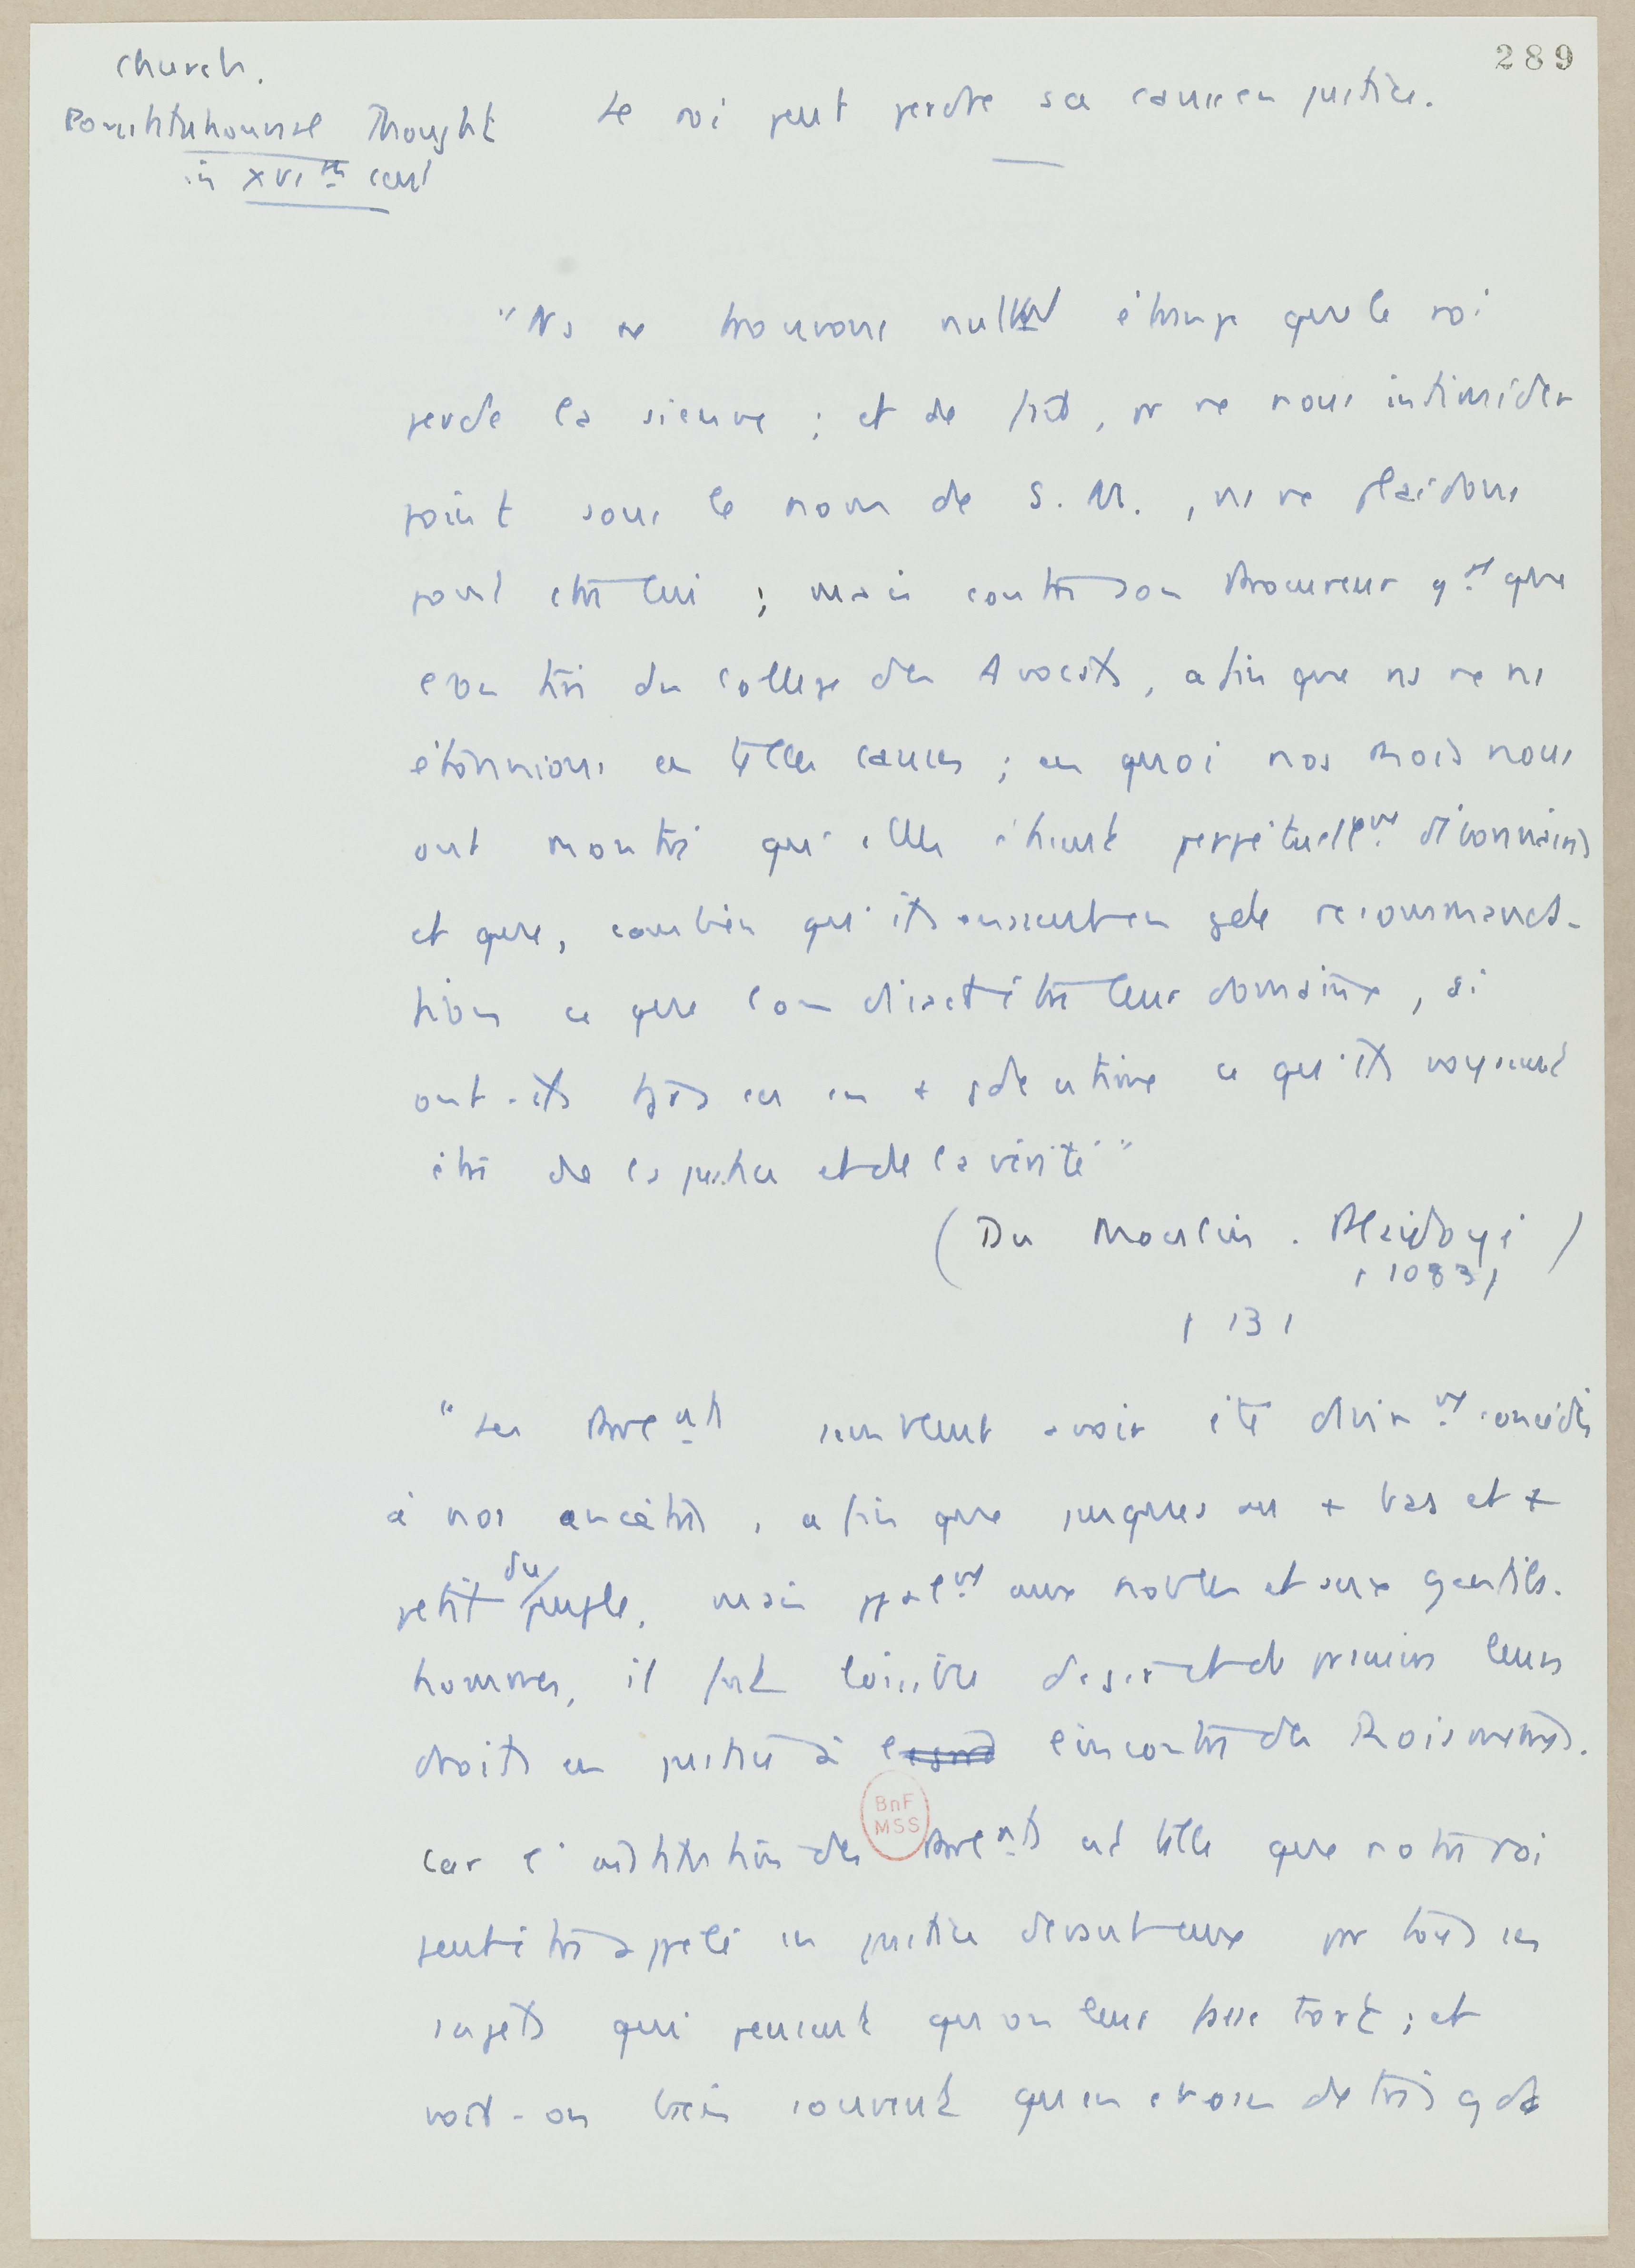 289
Church.
Constitutionnal Thought
in XVIth cent
Le roi peut perdre sa cause en justice.
"Ns ne trouvons nullt étrange que le roi
perde la sienne ; et de fait, on ne nous intimider
point sous le nom de S. M., ns ne plaidons
point ctre lui ; mais contre son Procureur gal que
l'on tire du college des Avocats, afin que ns ne ns
étonnions en telles causes ; en quoi nos Rois nous
ont montré qu'elles étaient perpétuellemt
et que, combien qu'ils eussent en gde recommanda-
tion ce que l'on disait être leur domaine, si
ont-ils tjrs eu en + gde estime ce qu'ils voyaient
être de la justice et de la vérité"
(Du Moulin. Plaidoyé)
(1083)
( 13 (
"Les Parelnts semblent avoir été divinmt concédés
à nos ancêtres, afin que jusques au + bas et +
petit du peuple, mais ppalemt aux nobles et aux gentils-
hommes, il fût loisible de
droits en justice à l'encontre des Rois mêmes.
BnF
MSS
Car l'institution des Parelnts est telle que notre roi
peut être appelé en justice devant eux par tous ses
sujets qui pensent qu'on leur fasse tort ; et
voit-on bien souvent qu'en choses de très gde